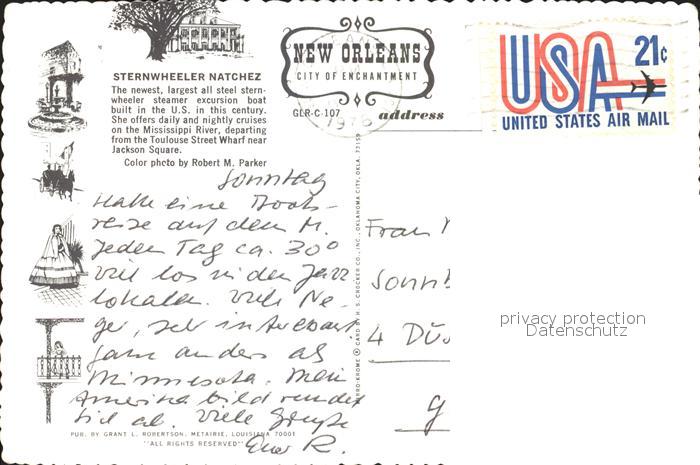 NEW ORLEANS
CITY OF ENCHANTMENT
USA 21¢
UNITED STATES AIR MAIL
STERNWHEELER NATCHEZ
The newest, largest all steel stern-
wheeler steamer excursion boat
built in the U.S. in this century.
She offers daily and nightly cruises
on the Mississippi River, departing
from the Toulouse Street Wharf near
Jackson Square.
Color photo by Robert M. Parker
GLR-C-107
1976
address
Sonntag
Hatte eine Boots-
reise auf dem M.
Jeden Tag ca. 30°
viel los in den Jazz
lokalen. Viele Ne-
ger, sehr interessant
ganz anders als
Minnesota. Mein
Amerika bild rundet
sich ab. Viele Grüße
Euer R.
Frau
Sonn
4 Dü
privacy protection
Datenschutz
© CARD BY H. S. CROCKER CO., INC., OKLAHOMA CITY, OKLA. 73159
PUB. BY GRANT L. ROBERTSON, METAIRIE, LOUISIANA 70001
"ALL RIGHTS RESERVED"